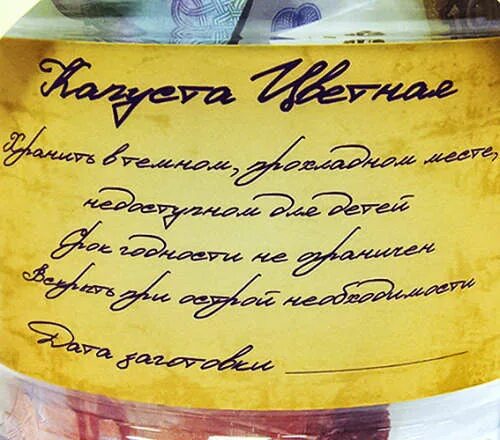 Капуста Цветная
Хранить в темном, прохладном месте,
недоступном для детей
Срок годности не ограничен
Вскрыть при острой необходимости
Дата заготовки